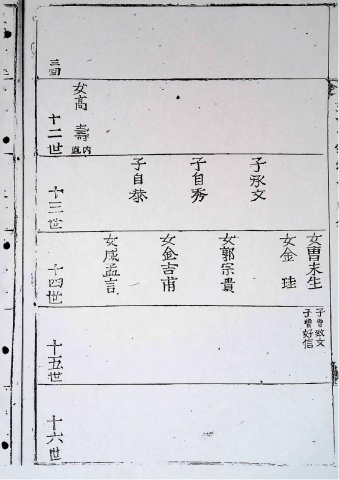 十二世
女高壽
內
十三世
子永文
子自秀
子自恭
十四世
女曺末生
女金珪
女郭宗貴
女金吉甫
女咸益言
子曺致文
子曺好信
十五世
十六世